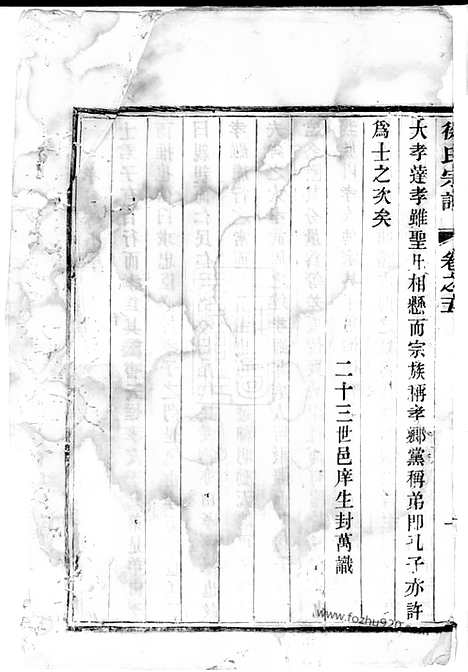 氏宗譜
卷之五
大孝達孝雖聖凡相懸而宗族稱孝鄉黨稱弟即孔子亦許
爲士之次矣
二十三世邑庠生封萬識
www.fozhu920